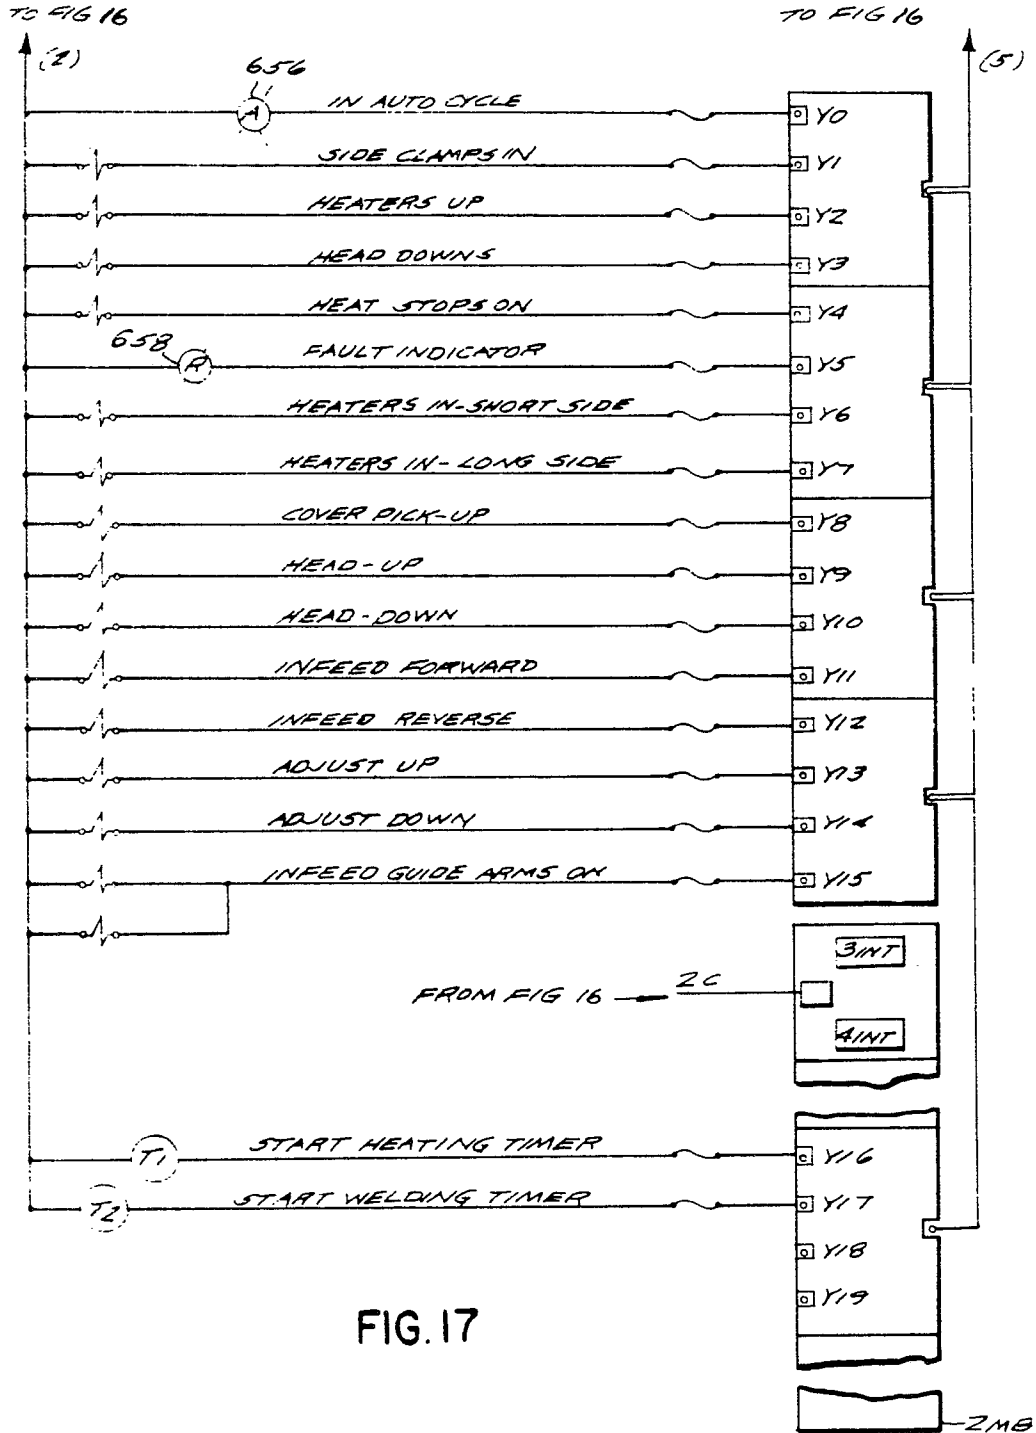 TO FIG 16
TO FIG 16
(2)
(5)
656
A
IN AUTO CYCLE
Y0
SIDE CLAMPS IN
Y1
HEATERS UP
Y2
HEAD DOWNS
Y3
HEAT STOPS ON
Y4
658
R
FAULT INDICATOR
Y5
HEATERS IN-SHORT SIDE
Y6
HEATERS IN-LONG SIDE
Y7
COVER PICK-UP
Y8
HEAD-UP
Y9
HEAD-DOWN
Y10
INFEED FORWARD
Y11
INFEED REVERSE
Y12
ADJUST UP
Y13
ADJUST DOWN
Y14
INFEED GUIDE ARMS ON
Y15
3INT
FROM FIG 16
2C
4INT
T1
START HEATING TIMER
Y16
T2
START WELDING TIMER
Y17
Y18
Y19
FIG. 17
2MB